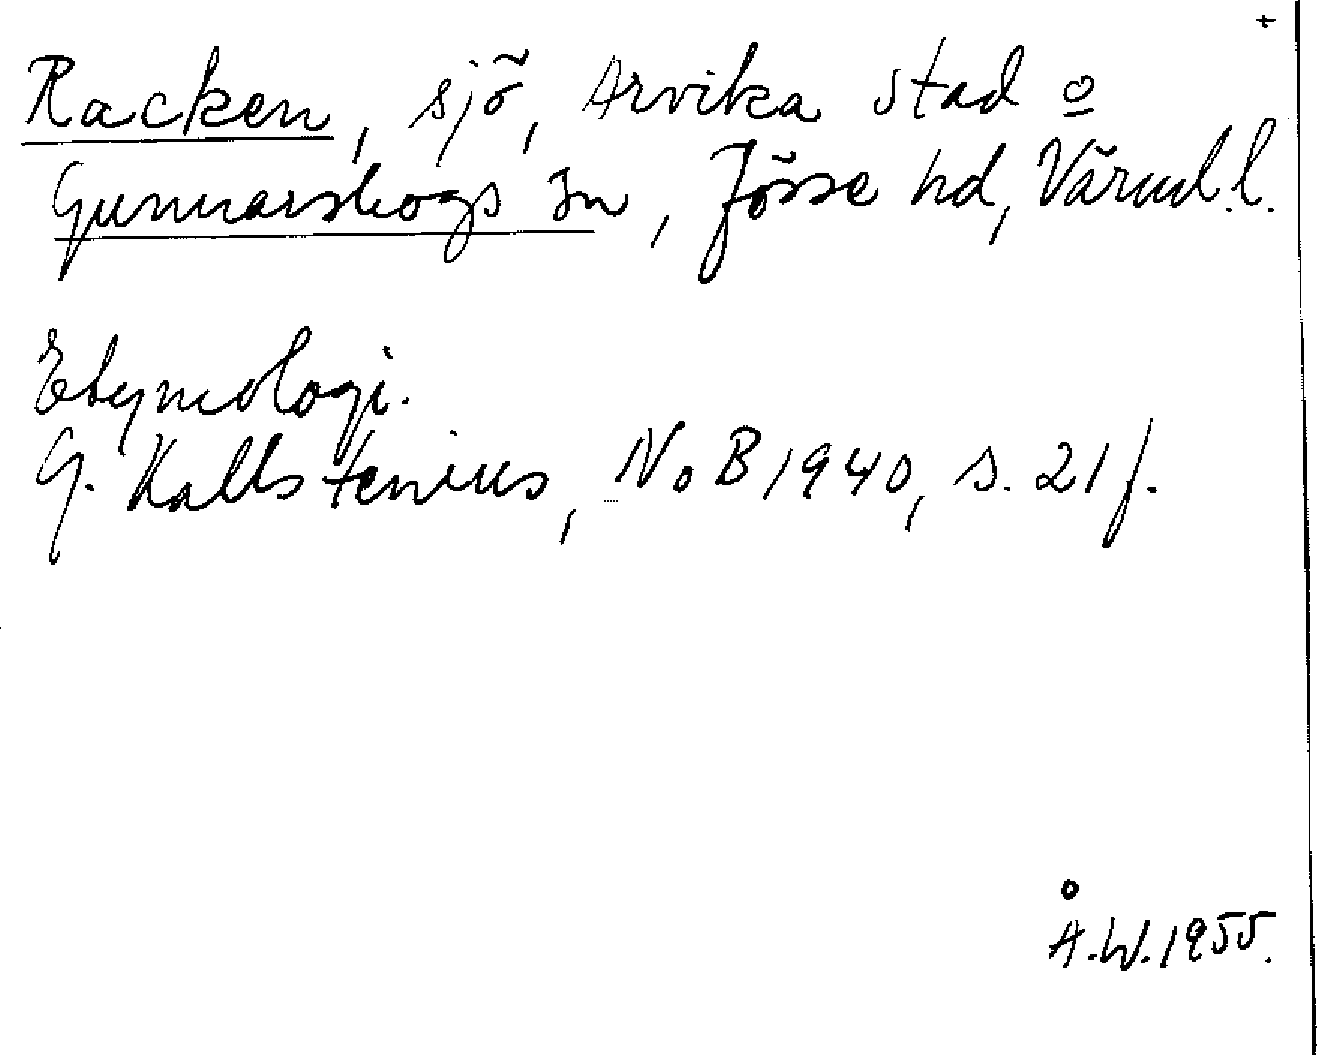 +
Racken, sjö, Arvika stad o
Gunnarskogs sn, Jösse hd, Värml.l.
Etymologi.
G. Kallstenius, NoB 1940, s. 21 f.
Å.W. 1955.